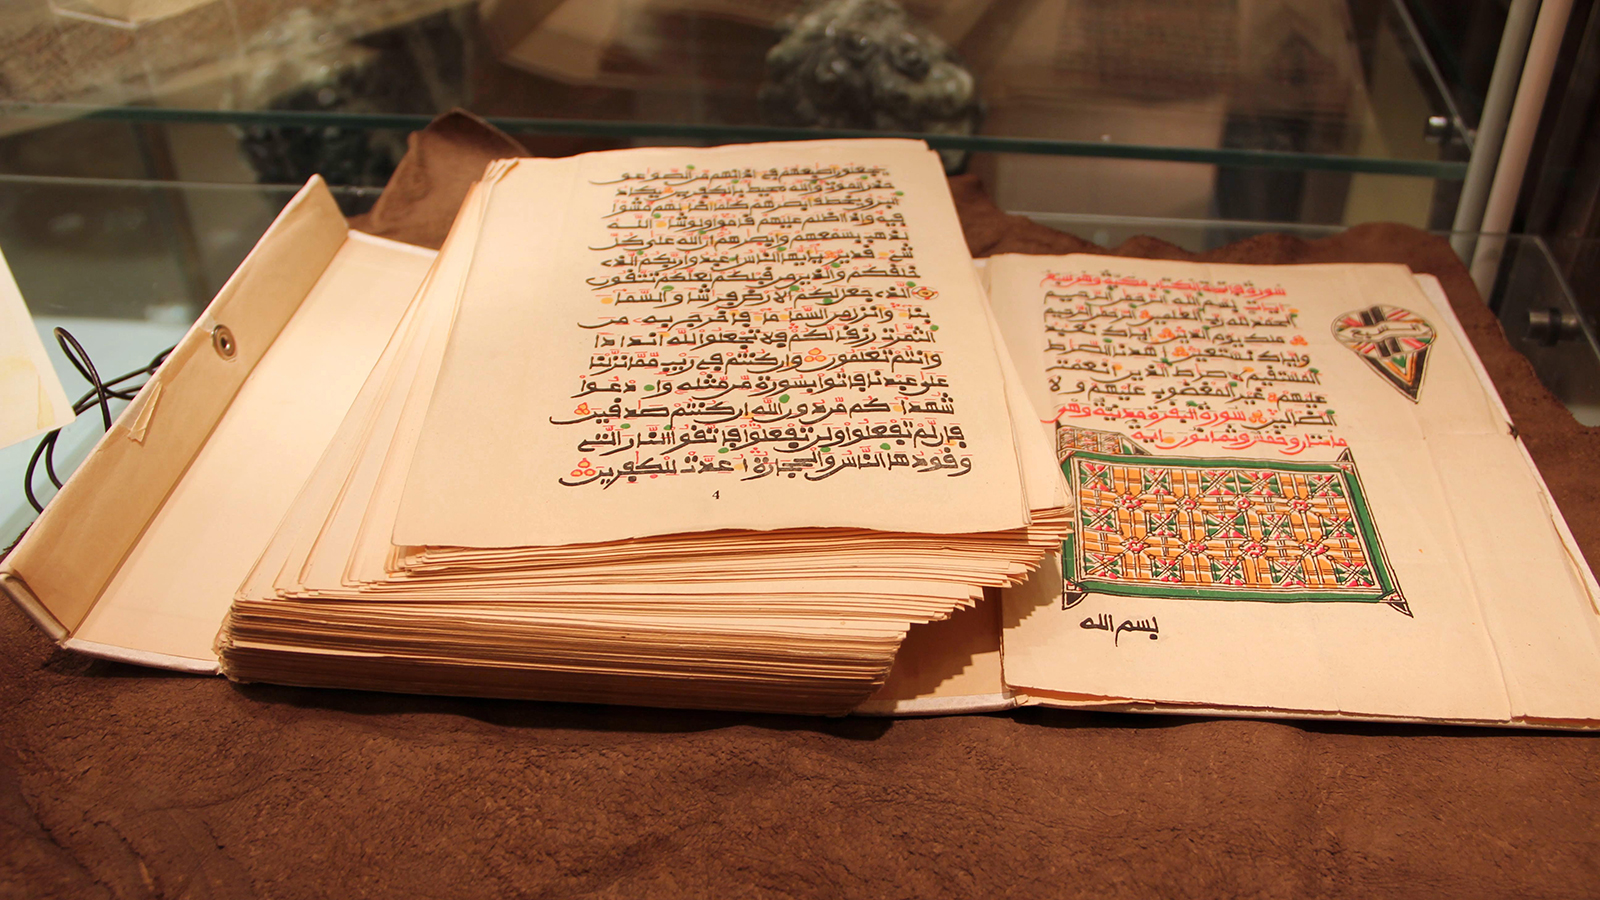 سورة فاتحة الكتاب مكية وهى سبع
ءايات بسم الله الرحمن الرحيم
الحمد لله رب العلمين الرحمن الرحيم
ملك يوم الدين اياك نعبد
واياك نستعين اهدنا الصراط
المستقيم صراط الذين انعمت
عليهم غير المغضوب عليهم ولا
الضالين سورة البقرة مدنية وهى
مائتان وخمس وثمانون ءاية
بسم الله
يجعلون اصبعهم في ءاذانهم من الصواعق
حذر الموت والله محيط بالكفرين يكاد
البرق يخطف ابصرهم كلما اضاء لهم مشوا
فيه واذا اظلم عليهم قاموا ولو شاء الله
لذهب بسمعهم وابصرهم ان الله على كل
شيء قدير يايها الناس اعبدوا ربكم الذي
خلقكم والذين من قبلكم لعلكم تتقون
الذي جعل لكم الارض فرشا والسماء
بناء وانزل من السماء ماء فاخرج به من
الثمرت رزقا لكم فلا تجعلوا لله اندادا
وانتم تعلمون وان كنتم في ريب مما نزلنا
على عبدنا فاتوا بسورة من مثله وادعوا
شهداءكم من دون الله ان كنتم صدقين
فان لم تفعلوا ولن تفعلوا فاتقوا النار التي
وقودها الناس والحجارة اعدت للكفرين
4